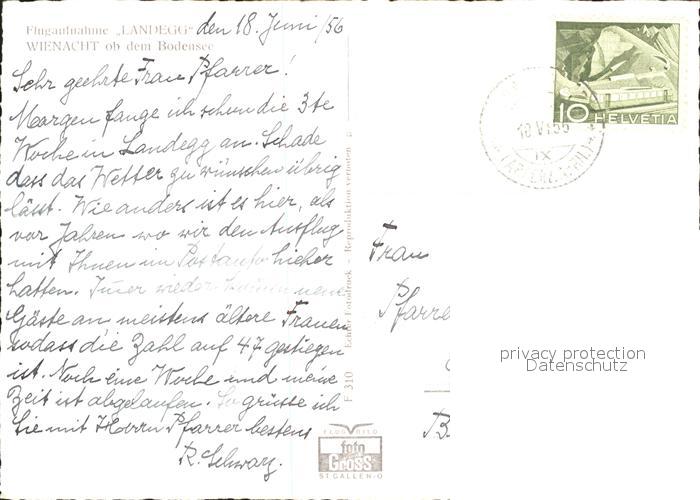 Flugaufnahme „LANDEGG"
WIENACHT ob dem Bodensee
den 18. Juni /56
Sehr geehrte Frau Pfarrer!
Morgen fange ich schon die 3te
Woche in Landegg an. Schade
dass das Wetter zu wünschen übrig
lässt. Wie anders ist es hier, als
vor Jahren wo wir den Ausflug
mit Ihnen im Postauto hieher
hatten. Imer wieder kamen neue
Gäste an meistens ältere Frauen
sodass die Zahl auf 47 gestiegen
ist. Noch eine Woche und meine
Zeit ist abgelaufen. So grüsse ich
Sie mit Herrn Pfarrer bestens
R. Schwarz.
F 310 Echter Fotodruck - Reproduktion verboten
FLUGBILD
foto
GROSS
ST GALLEN-O
10 HELVETIA
18 VI 56
IX
Frau
Pfarre
B
privacy protection
Datenschutz